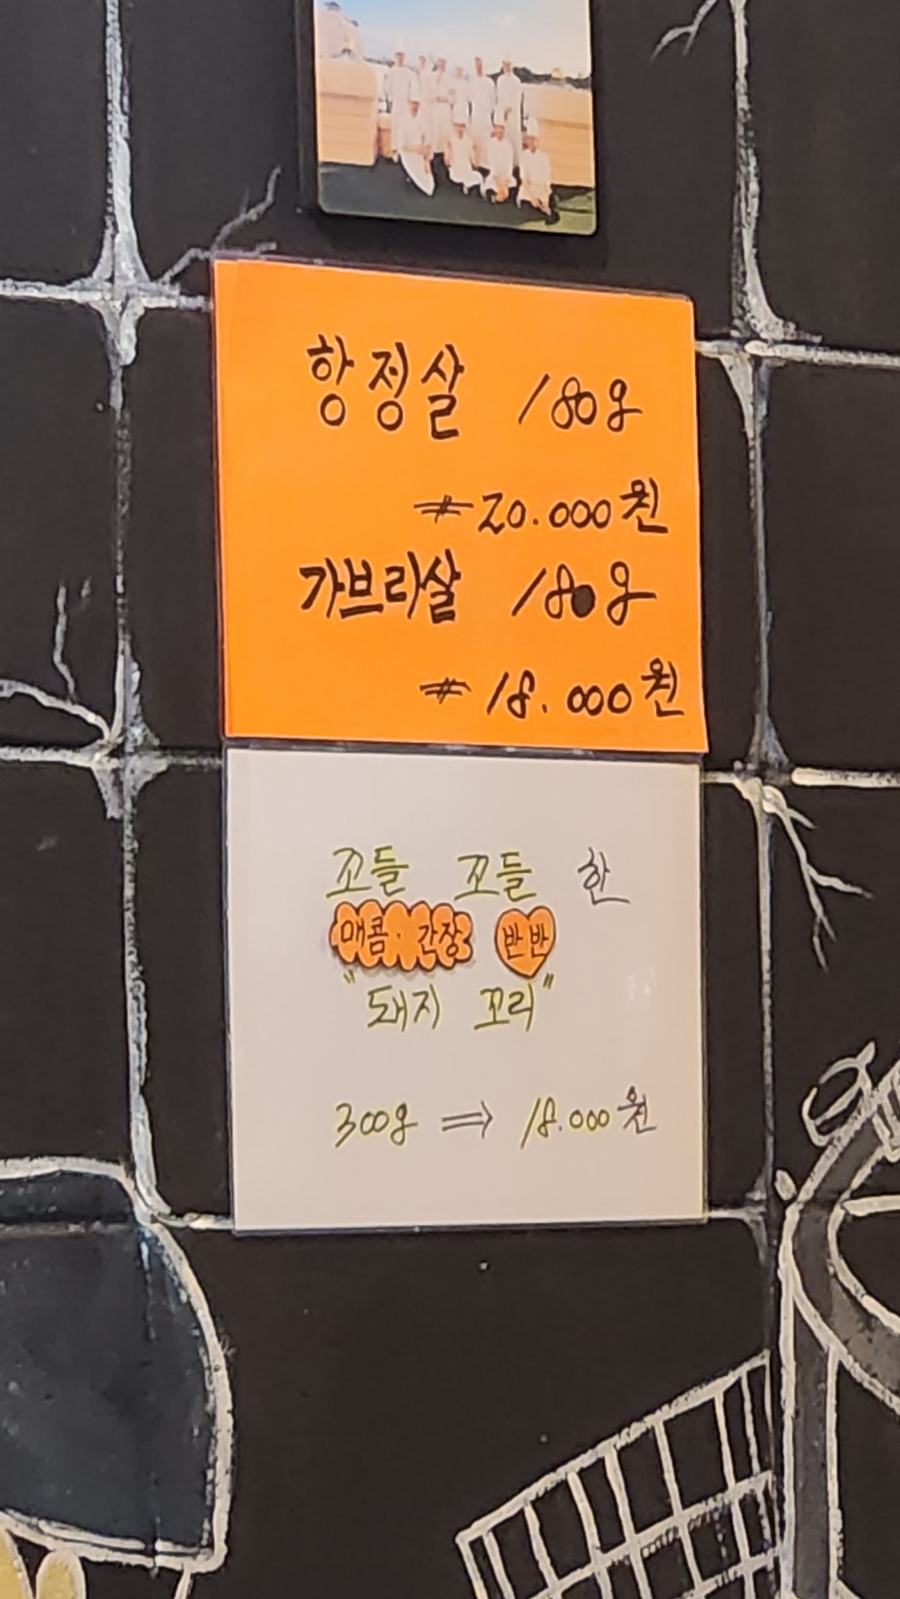 항정살 180g
₩20.000원
가브리살 180g
₩18.000원
꼬들 꼬들 한
매콤·간장 반반
"돼지 꼬리"
300g ⇒ 18.000원